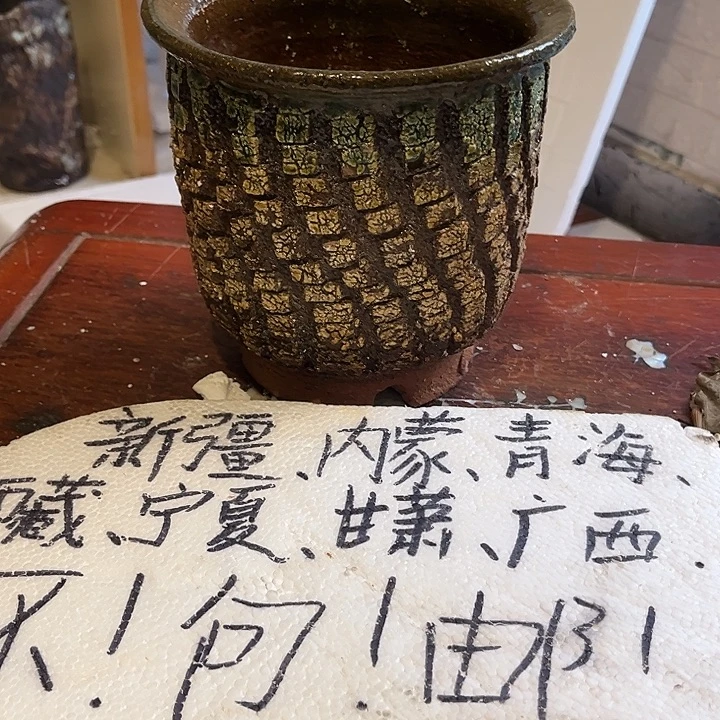 新疆、内蒙、青海、
西藏、宁夏、甘萧、广西.
不！包！邮！